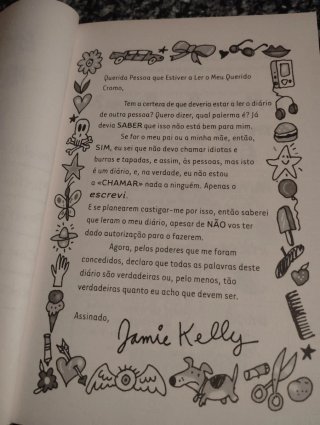 Querida Pessoa que Estiver a Ler o Meu Querido
Cromo,
Tem a certeza de que deveria estar a ler o diário
de outra pessoa? Quero dizer, qual palerma é? Já
devia SABER que isso não está bem para mim.
Se for o meu pai ou a minha mãe, então,
SIM, eu sei que não devo chamar idiotas e
burras e tapadas, e assim, às pessoas, mas isto
é um diário, e, na verdade, eu não estou
a «CHAMAR» nada a ninguém. Apenas o
escrevi.
E se planearem castigar-me por isso, então saberei
que leram o meu diário, apesar de NÃO vos ter
dado autorização para o fazerem.
Agora, pelos poderes que me foram
concedidos, declaro que todas as palavras deste
diário são verdadeiras ou, pelo menos, tão
verdadeiras quanto eu acho que devem ser.
Assinado,
Jamie Kelly